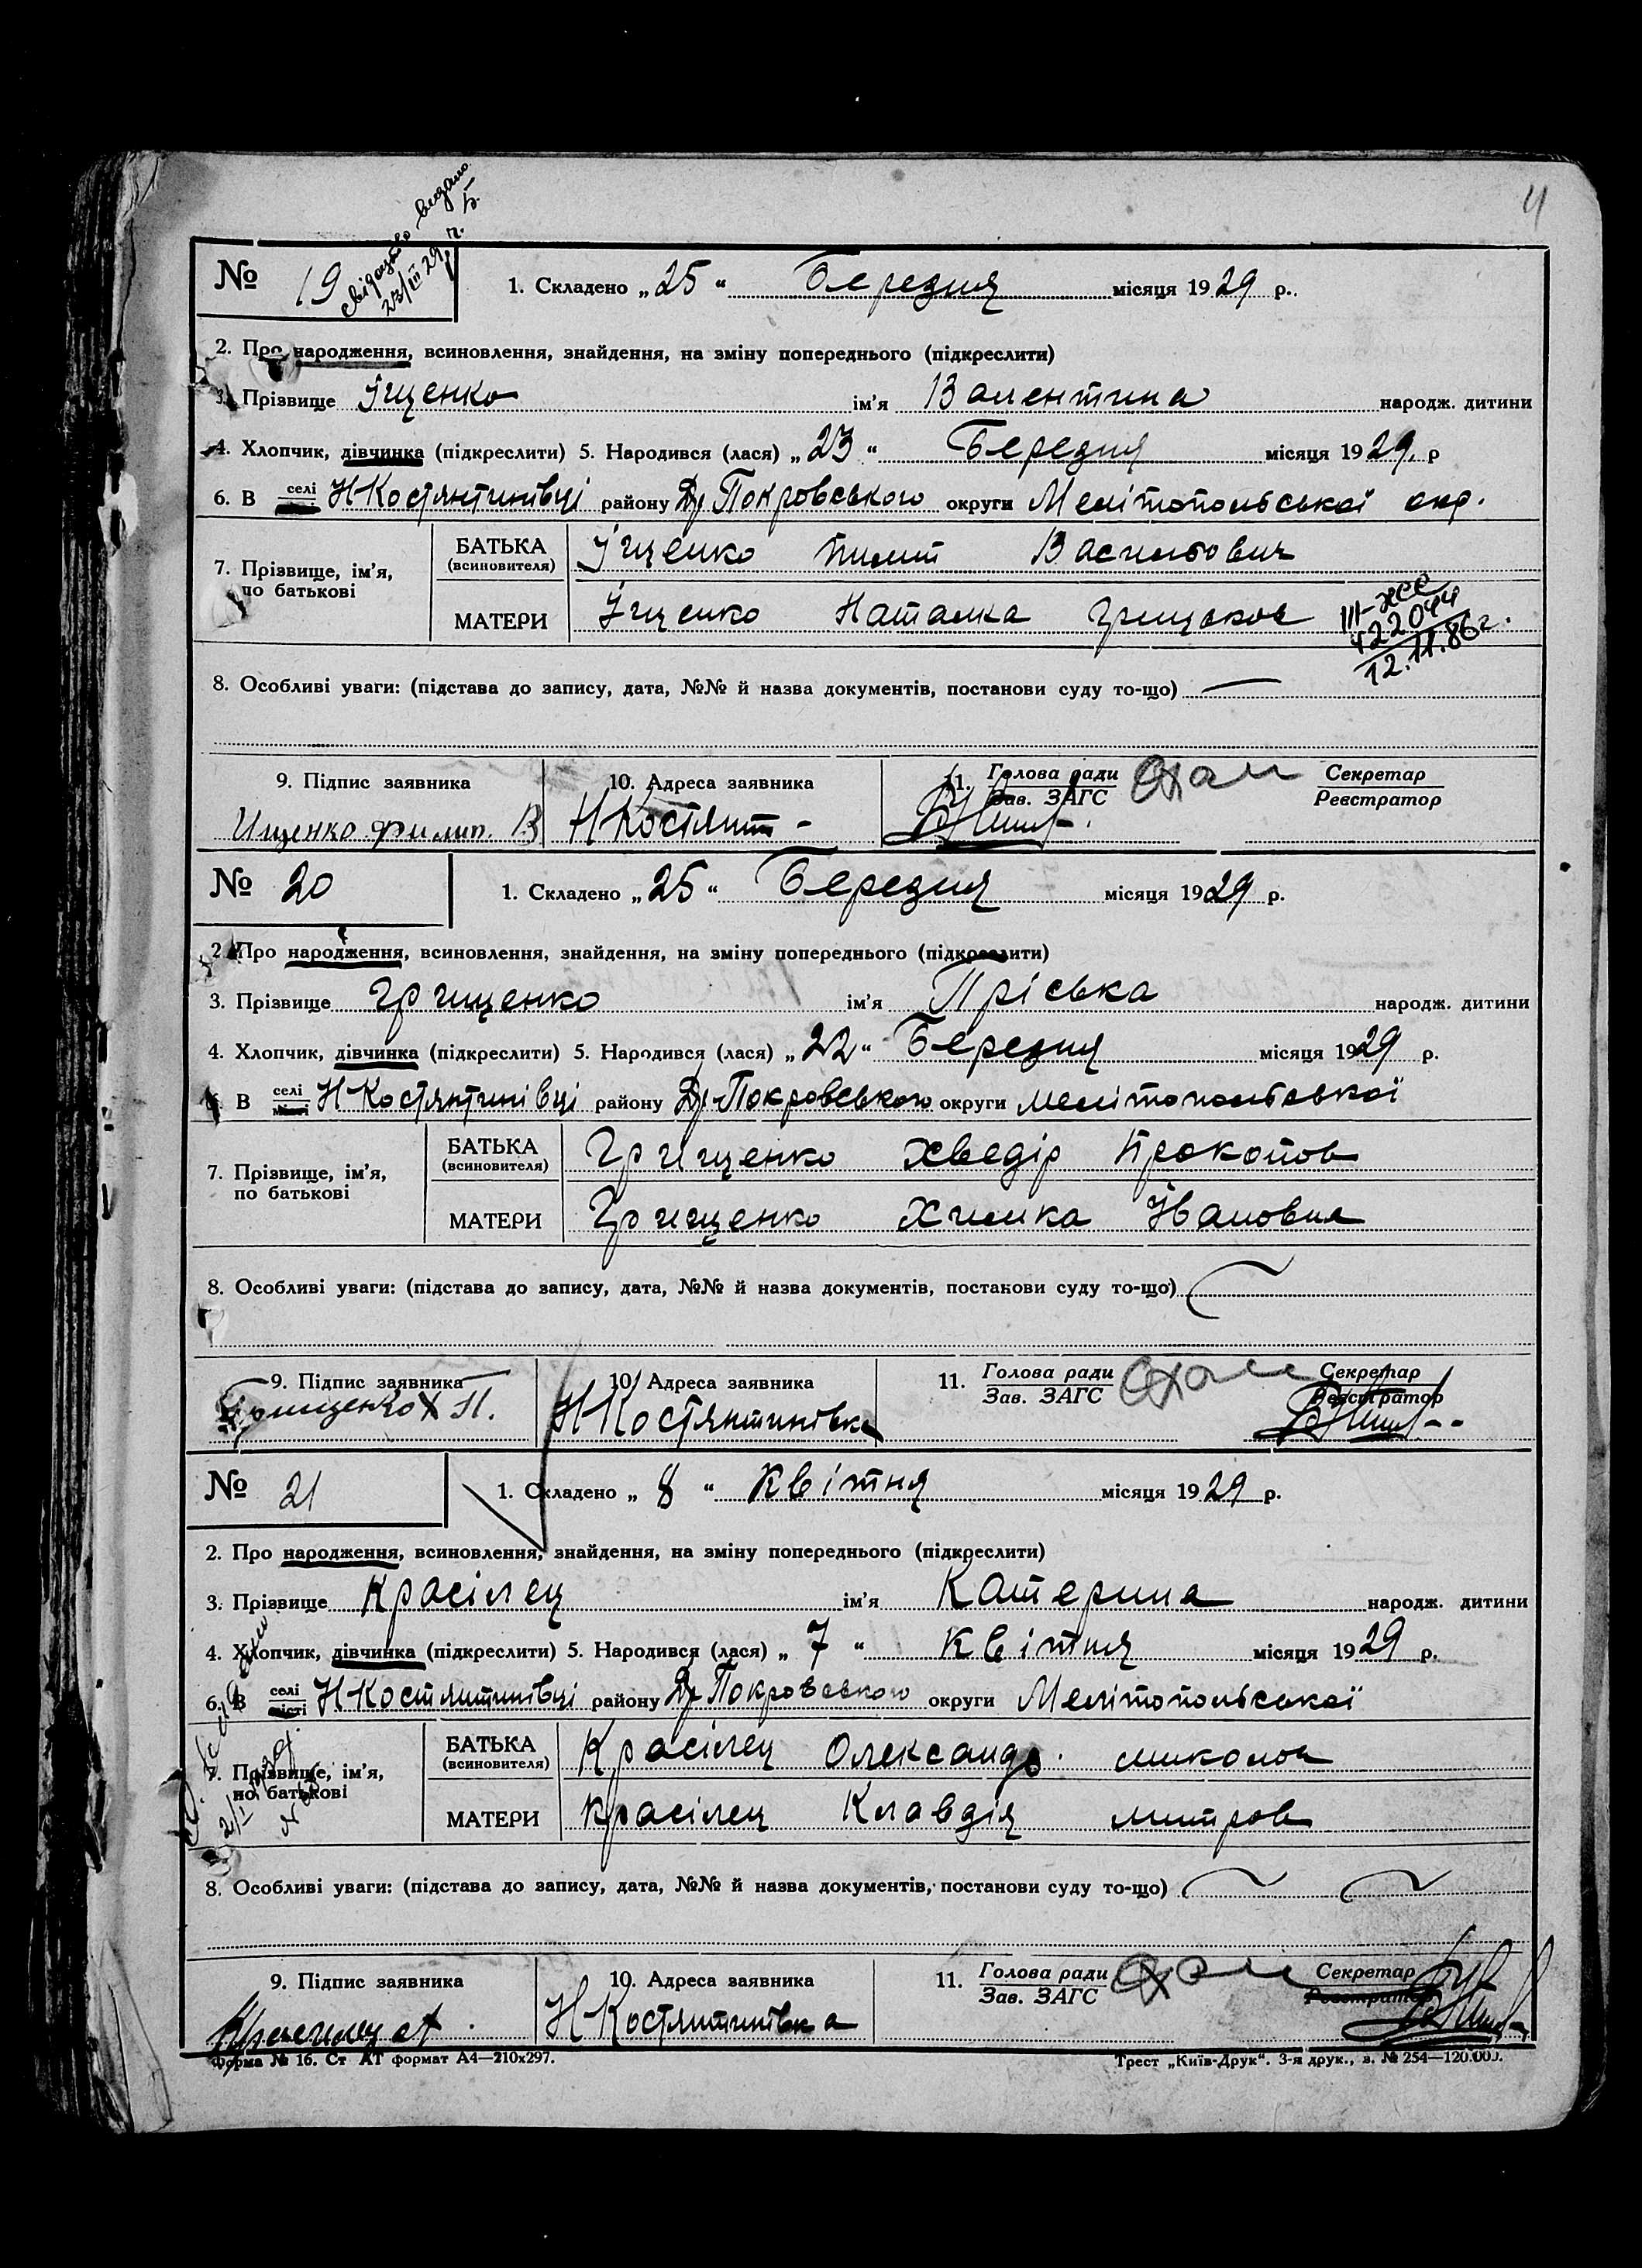 4
свідоцтво видано
23/III 29 р.
№ 19
1. Складено „25“ Березня місяця 1929 р.
2. Про народження, всиновлення, знайдення, на зміну попереднього (підкреслити)
3. Прізвище Іщенко ім'я Валентина народж. дитини
4. Хлопчик, дівчинка (підкреслити) 5. Народився (лася) „23“ Березня місяця 1929. р
6. В селі НКостянтинівці району Др Покровського округи Мелітопольської окр.
7. Прізвище, ім'я, по батькові
БАТЬКА (всиновителя) Іщенко Пилип Васильович
МАТЕРИ Іщенко Наталка Грицьков
III-ЖС
422044
12.11.86г.
8. Особливі уваги: (підстава до запису, дата, №№ й назва документів, постанови суду то-що) —
9. Підпис заявника 10. Адреса заявника 11. Голова ради Секретар
Зав. ЗАГС Реєстратор
Ищенко Филип. В НКостянт-
№ 20
1. Складено „25“ Березня місяця 1929 р.
2. Про народження, всиновлення, знайдення, на зміну попереднього (підкреслити)
3. Прізвище Грищенко ім'я Пріська народж. дитини
4. Хлопчик, дівчинка (підкреслити) 5. Народився (лася) „22“ Березня місяця 1929 р.
6. В селі місті НКостянтинівці району Др-Покровського округи Мелітопольської
7. Прізвище, ім'я, по батькові
БАТЬКА (всиновителя) Грищенко Хведір Прокопов
МАТЕРИ Грищенко Химка Івановна
8. Особливі уваги: (підстава до запису, дата, №№ й назва документів, постанови суду то-що)
9. Підпис заявника 10. Адреса заявника 11. Голова ради Секретар
Зав. ЗАГС Реєстратор
Грищенко Х П. НКостянтинівка
№ 21
1. Складено „8“ Квітня місяця 1929 р.
2. Про народження, всиновлення, знайдення, на зміну попереднього (підкреслити)
3. Прізвище Красілец ім'я Катерина народж. дитини
4. Хлопчик, дівчинка (підкреслити) 5. Народився (лася) „7“ Квітня місяця 1929 р.
6. В селі місті НКостянтинівці району Др Покровського округи Мелітопольської
7. Прізвище, ім'я, по батькові
БАТЬКА (всиновителя) Красілец Олександр. миколов
МАТЕРИ Красілец Клавдія митров
8. Особливі уваги: (підстава до запису, дата, №№ й назва документів, постанови суду то-що)
9. Підпис заявника 10. Адреса заявника 11. Голова ради Секретар
Зав. ЗАГС Реєстратор
НКостянтинівка
Форма № 16. Ст АТ формат А4—210х297.
Трест „Київ-Друк“. 3-я друк., з. № 254—120.000.